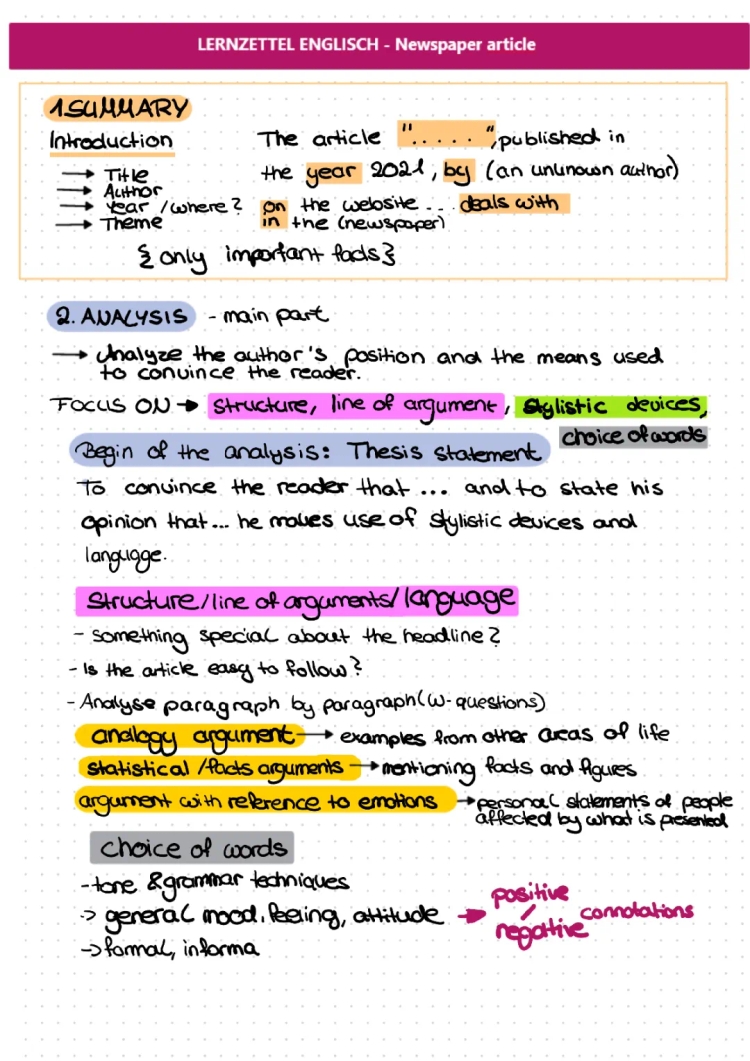 LERNZETTEL ENGLISCH - Newspaper article
1. SUMMARY
Introduction
→ Title
→ Author
→ Year / where?
→ Theme
The article ".....", published in
the year 2021, by (an ununown author)
on the website ... deals with
in the (newspaper)
{ only important facts }
2. ANALYSIS - main part
→ Analyze the author's position and the means used
to convince the reader.
FOCUS ON → structure, line of argument, stylistic devices,
choice of words
Begin of the analysis: Thesis statement
To convince the reader that ... and to state his
opinion that ... he makes use of stylistic devices and
language.
Structure/line of arguments/language
- something special about the headline?
- Is the article easy to follow?
- Analyse paragraph by paragraph (W-questions)
analogy argument → examples from other areas of life
statistical /facts arguments → mentioning facts and figures
argument with reference to emotions → personal statements of people
affected by what is presented
choice of words
- tone & grammar techniques
-> general mood, feeling, attitude → positive / negative connotations
-> formal, informa